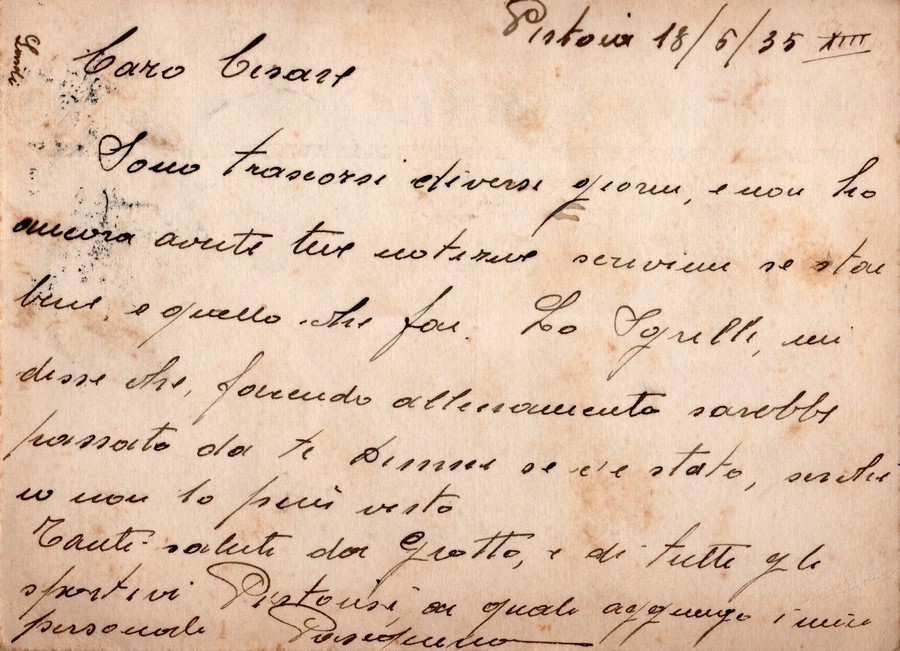 Pistoia 18/5/35 XIII
Caro Cesare
Sono trascorsi diversi giorni, e non ho
ancora avute tue notizie scrivimi se stai
bene, e quello che fai. Lo Sgrilli, mi
disse che, facendo allenamento sarebbe
passato da te Dimmi se ci è stato, perchè
io non lo più visto
Tanti saluti da Grotto, e di tutti gli
sportivi Pistoiesi, ai quali aggiungo i miei
personali